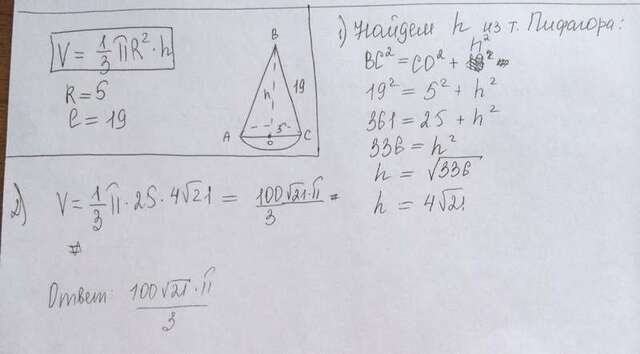 V = 1/3 πR² · h
R = 5
l = 19
B
h
19
A
5
C
O
1) Найдем h из т. Пифагора:
BC² = CO² + h²
19² = 5² + h²
361 = 25 + h²
336 = h²
h = √336
h = 4√21
2) V = 1/3 π · 25 · 4√21 = 100√21 · π / 3 =
Ответ: 100√21 · π / 3